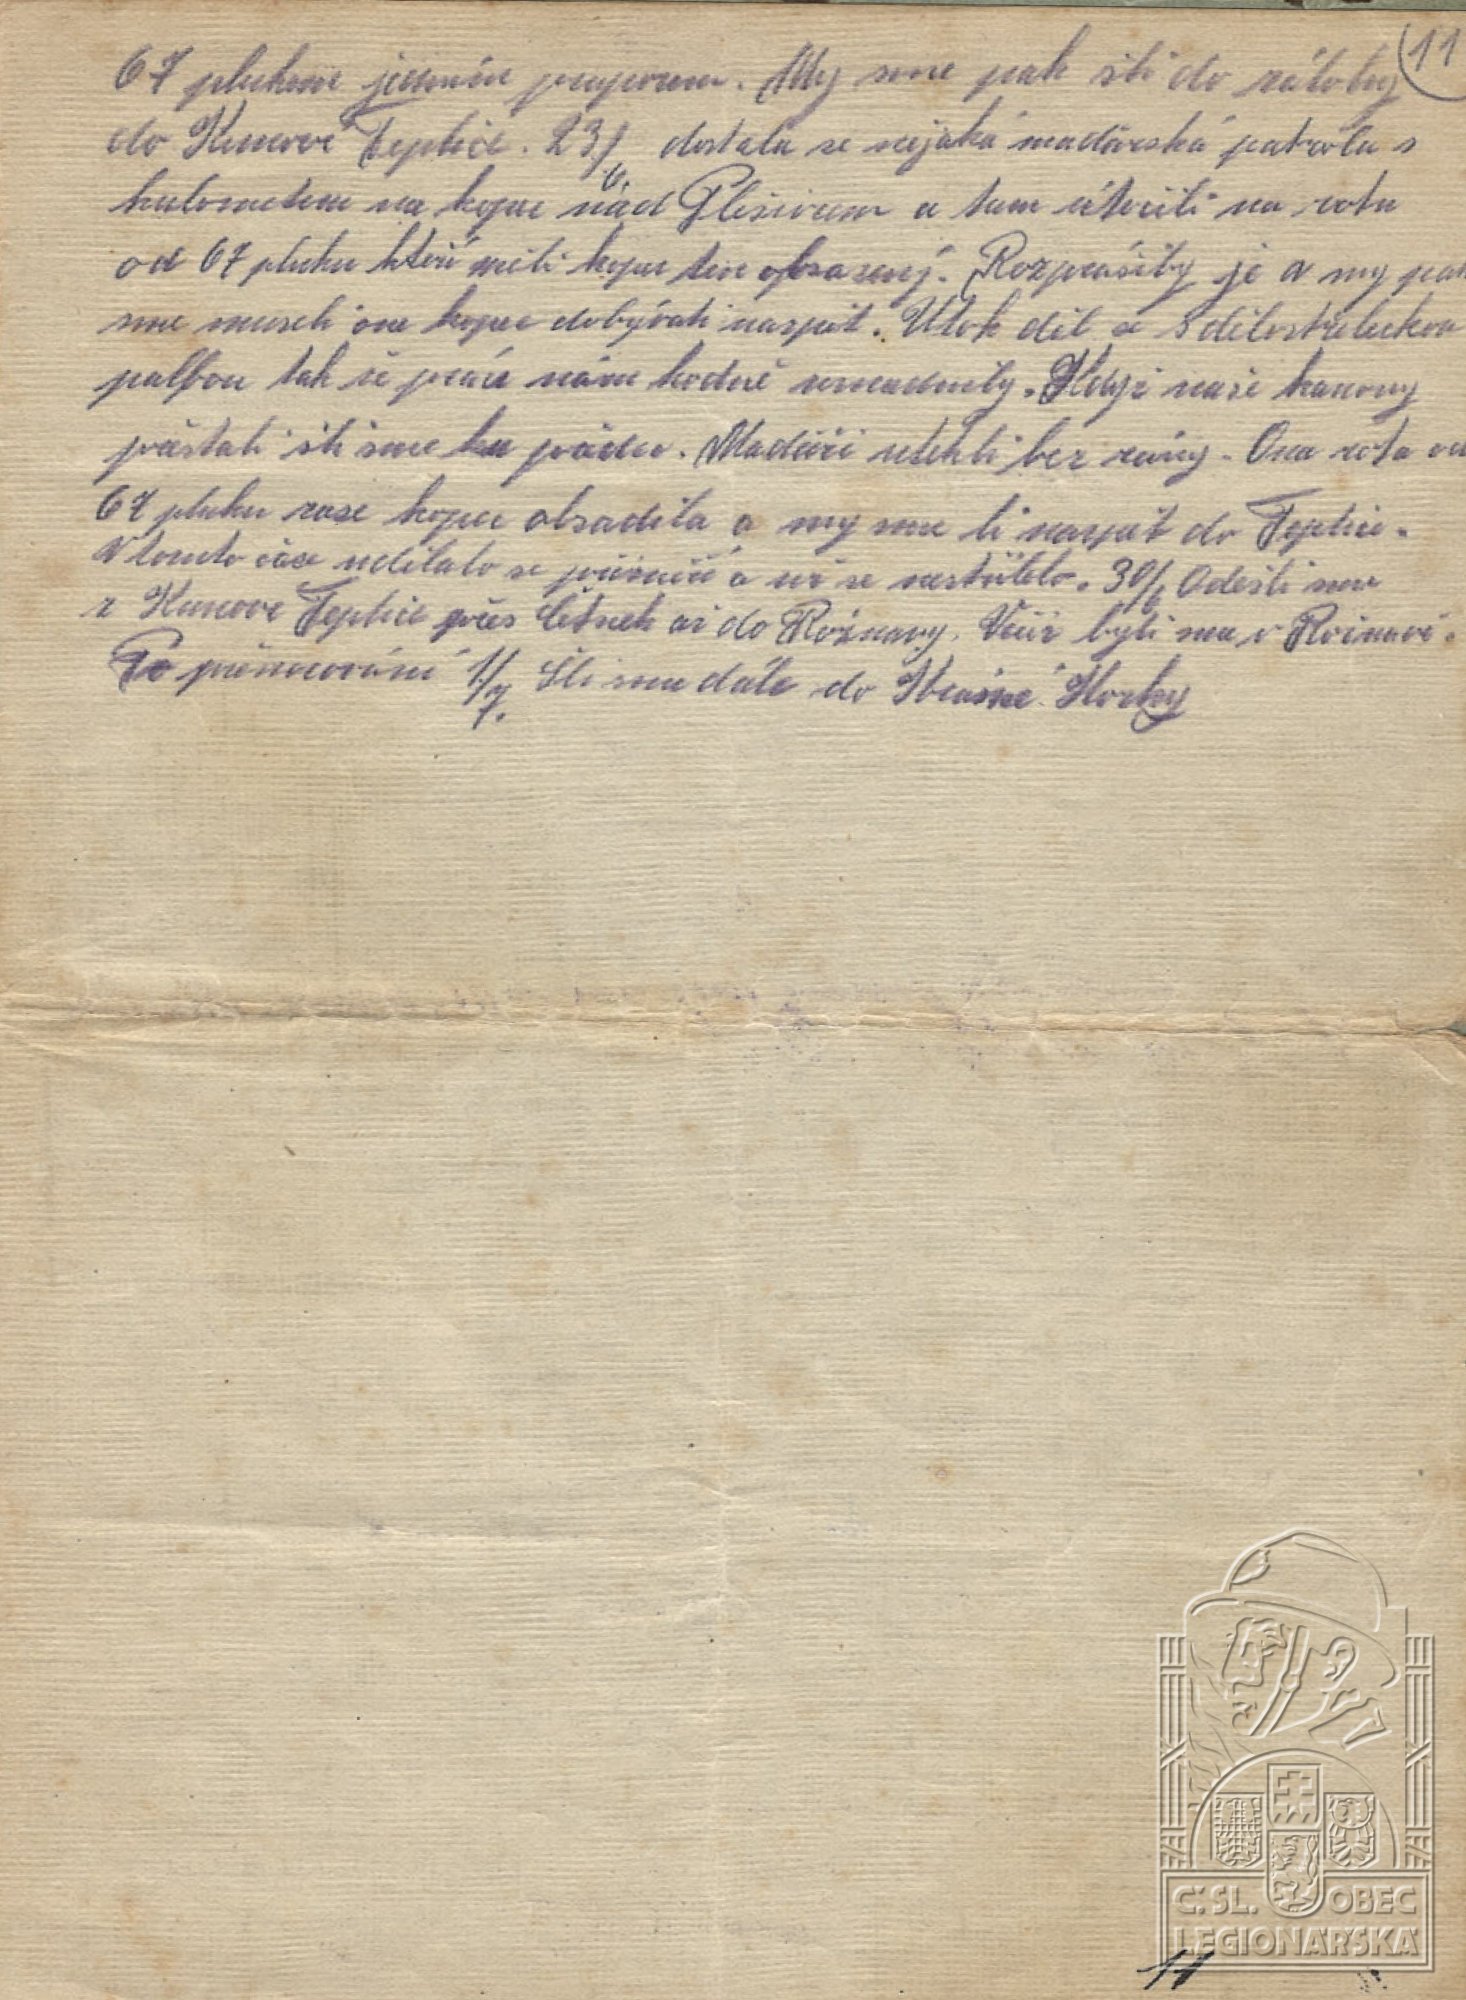 11
67 plukem jedním praporem. My sme pak šli do zálohy
do Kunové Teplice. 23/6. dostala se nejaká madárská patrola s
kulometem na kopec nád Plešivcem a tam útočili na rotu
od 67 pluku kteří meli kopec ten obsazený. Rozprášily je a my pak
sme museli one kopec dobývati naspát. Utok dil se s dělostřeleckou
palbou tak že práce nám hodně usnadnily. Když naše kanony
prěstali šli sme ku prědu. Madăři utekli bez rány. Ona rota od
67 pluku zase kopec obsadila a my sme li naspát do Teplic.
V tomto čase udělalo se přiměří a už se nestřílelo. 30/6 Odešli sme
z Kunove Teplice přes Štítnek až do Rožnavy. Večer byli sme v Rožnavě.
Po přenocování 1/7. šli sme dále do Krásné Horky
C.SL. OBEC
LEGIONÁŘSKÁ
11